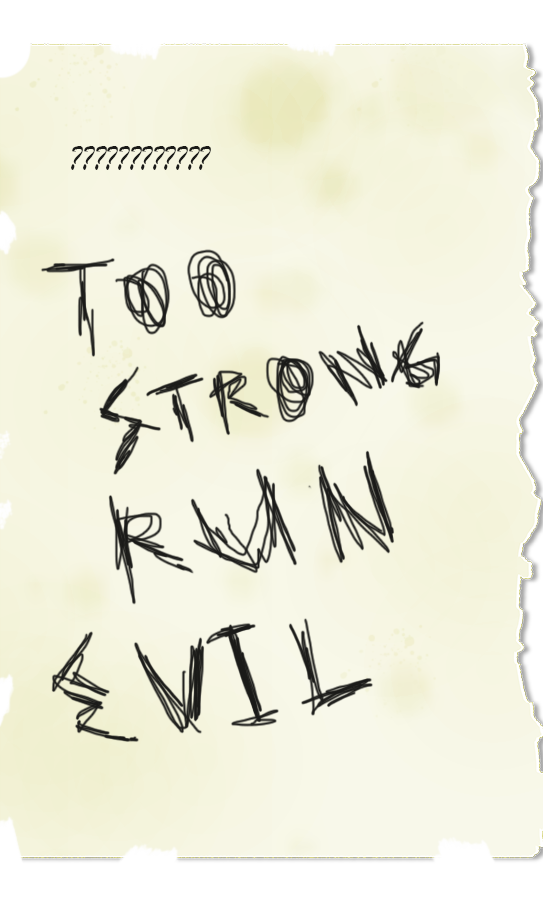 ????????????
TOO
STRONG
RUN
EVIL